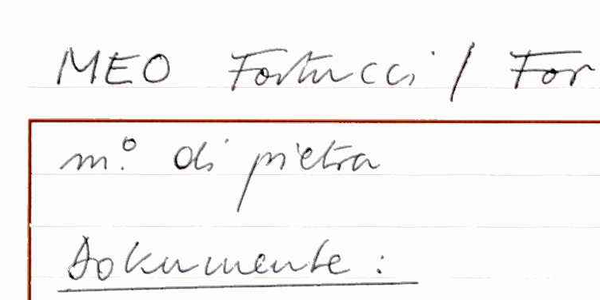 MEO Fortucci / For
m.º di pietra
Dokumente: